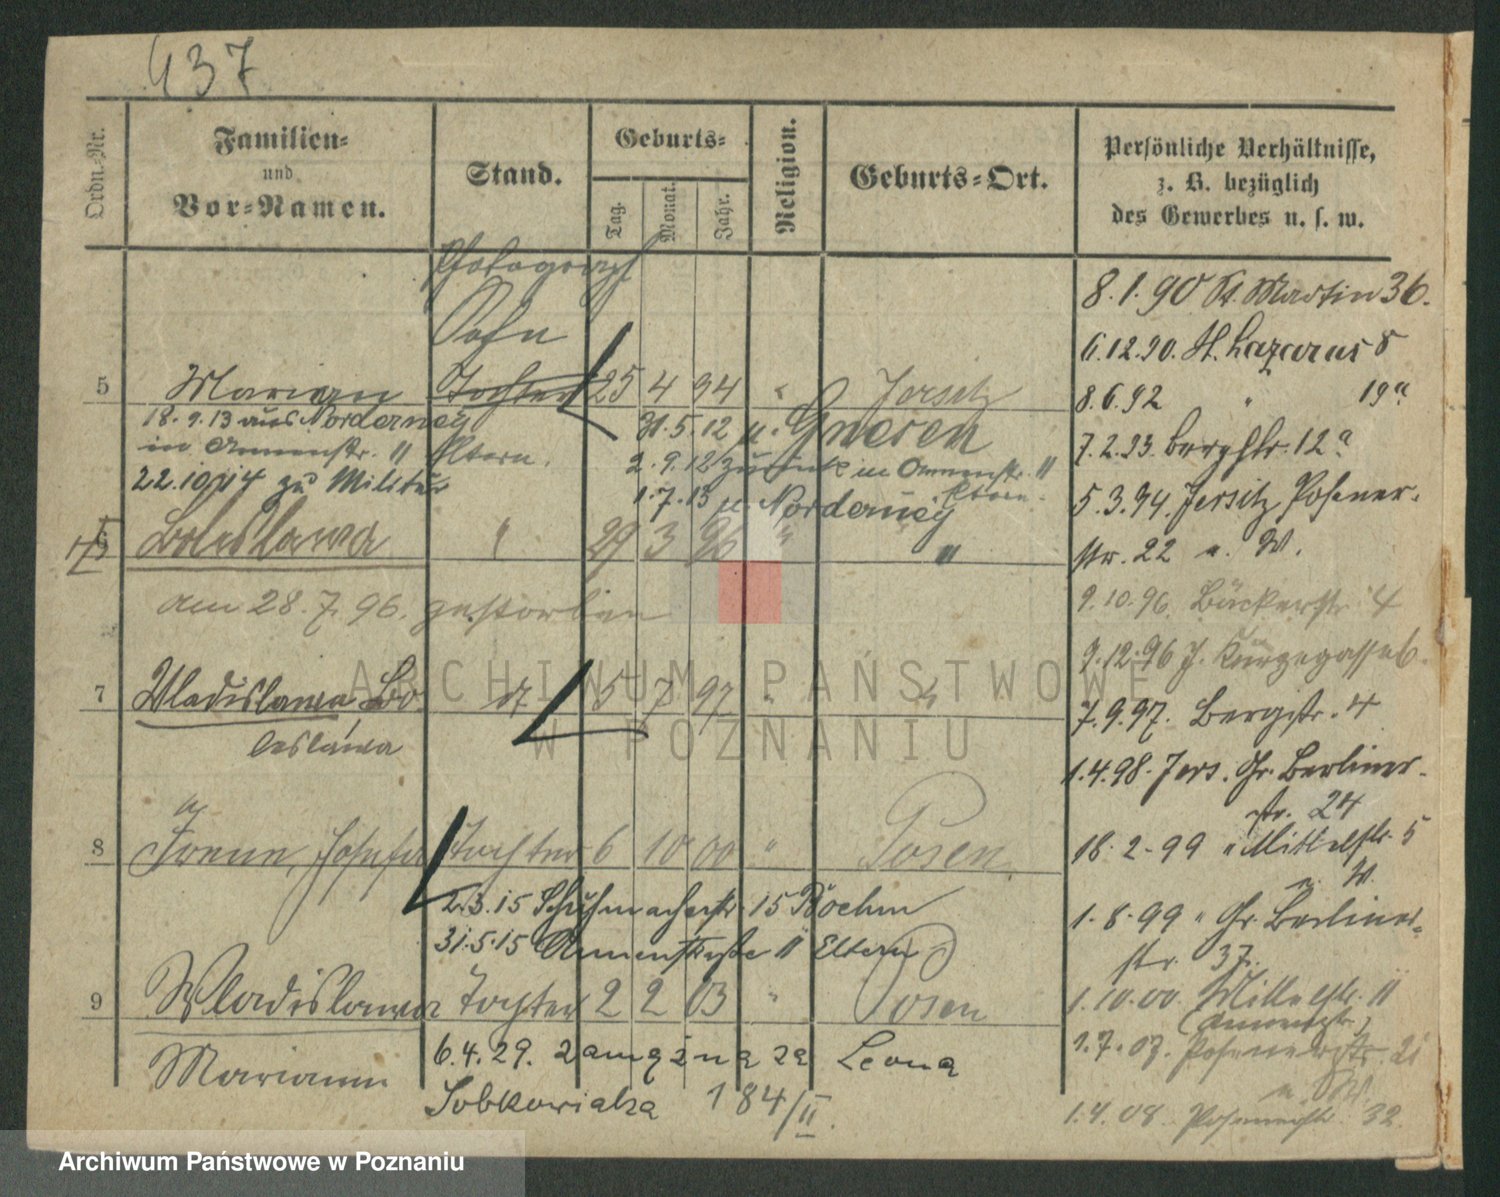 437
Ordn.-Nr.
Familien-
und
Vor-Namen.
Stand.
Geburts-
Tag.
Monat.
Jahr.
Religion.
Geburts-Ort.
Persönliche Verhältnisse,
z. B. bezüglich
des Gewerbes u. s. w.
Photograph
Sohn
5 Marian Tochter 25 4 94 " Jersitz
18.9.13 aus Norderney
in Armenstr. 11 Eltern.
22.10.14 zu Militär
31.5.12 u. Gnesen
2.9.12 zurück in Armenstr. 11
Eltern.
1.7.13 u. Norderney
6 Boleslawa " 29 3 96 " "
am 28.7.96. gestorben
7 Wladislawa Bo
leslawa
dt 5 7 97 " "
8 Irene, Josefa Tochter 6 10 00 " Posen
2.3.15 Schuhmacherstr. 15 Boehm
31.5.15 Armenstraße 11 Eltern
9 Wladislawa Tochter 2 2 03 " Posen
Marianna
6.4.29. zamężna za Leona
Sobkowiaka 184/II.
8.1.90 St. Martin 36.
6.12.90. St. Lazarus 8
8.6.92 " 19a
7.2.93. Bergstr. 12a
5.3.94. Jersitz Posener-
str. 22 u. W.
9.10.96. Bäckerstr. 4
9.12.96 J. Kurzegasse 6.
7.9.97. Bergstr. 4
1.4.98. Jers. Gr. Berliner-
str. 24
18.2.99 " Mittelstr. 5
u. W.
1.8.99 " Gr. Berliner-
str. 37.
1.10.00. Mittelstr. 11
(Armenstr.)
1.7.03. Posenerstr. 21
u. W.
1.4.08. Posenerstr. 32.
ARCHIWUM PAŃSTWOWE
W POZNANIU
Archiwum Państwowe w Poznaniu